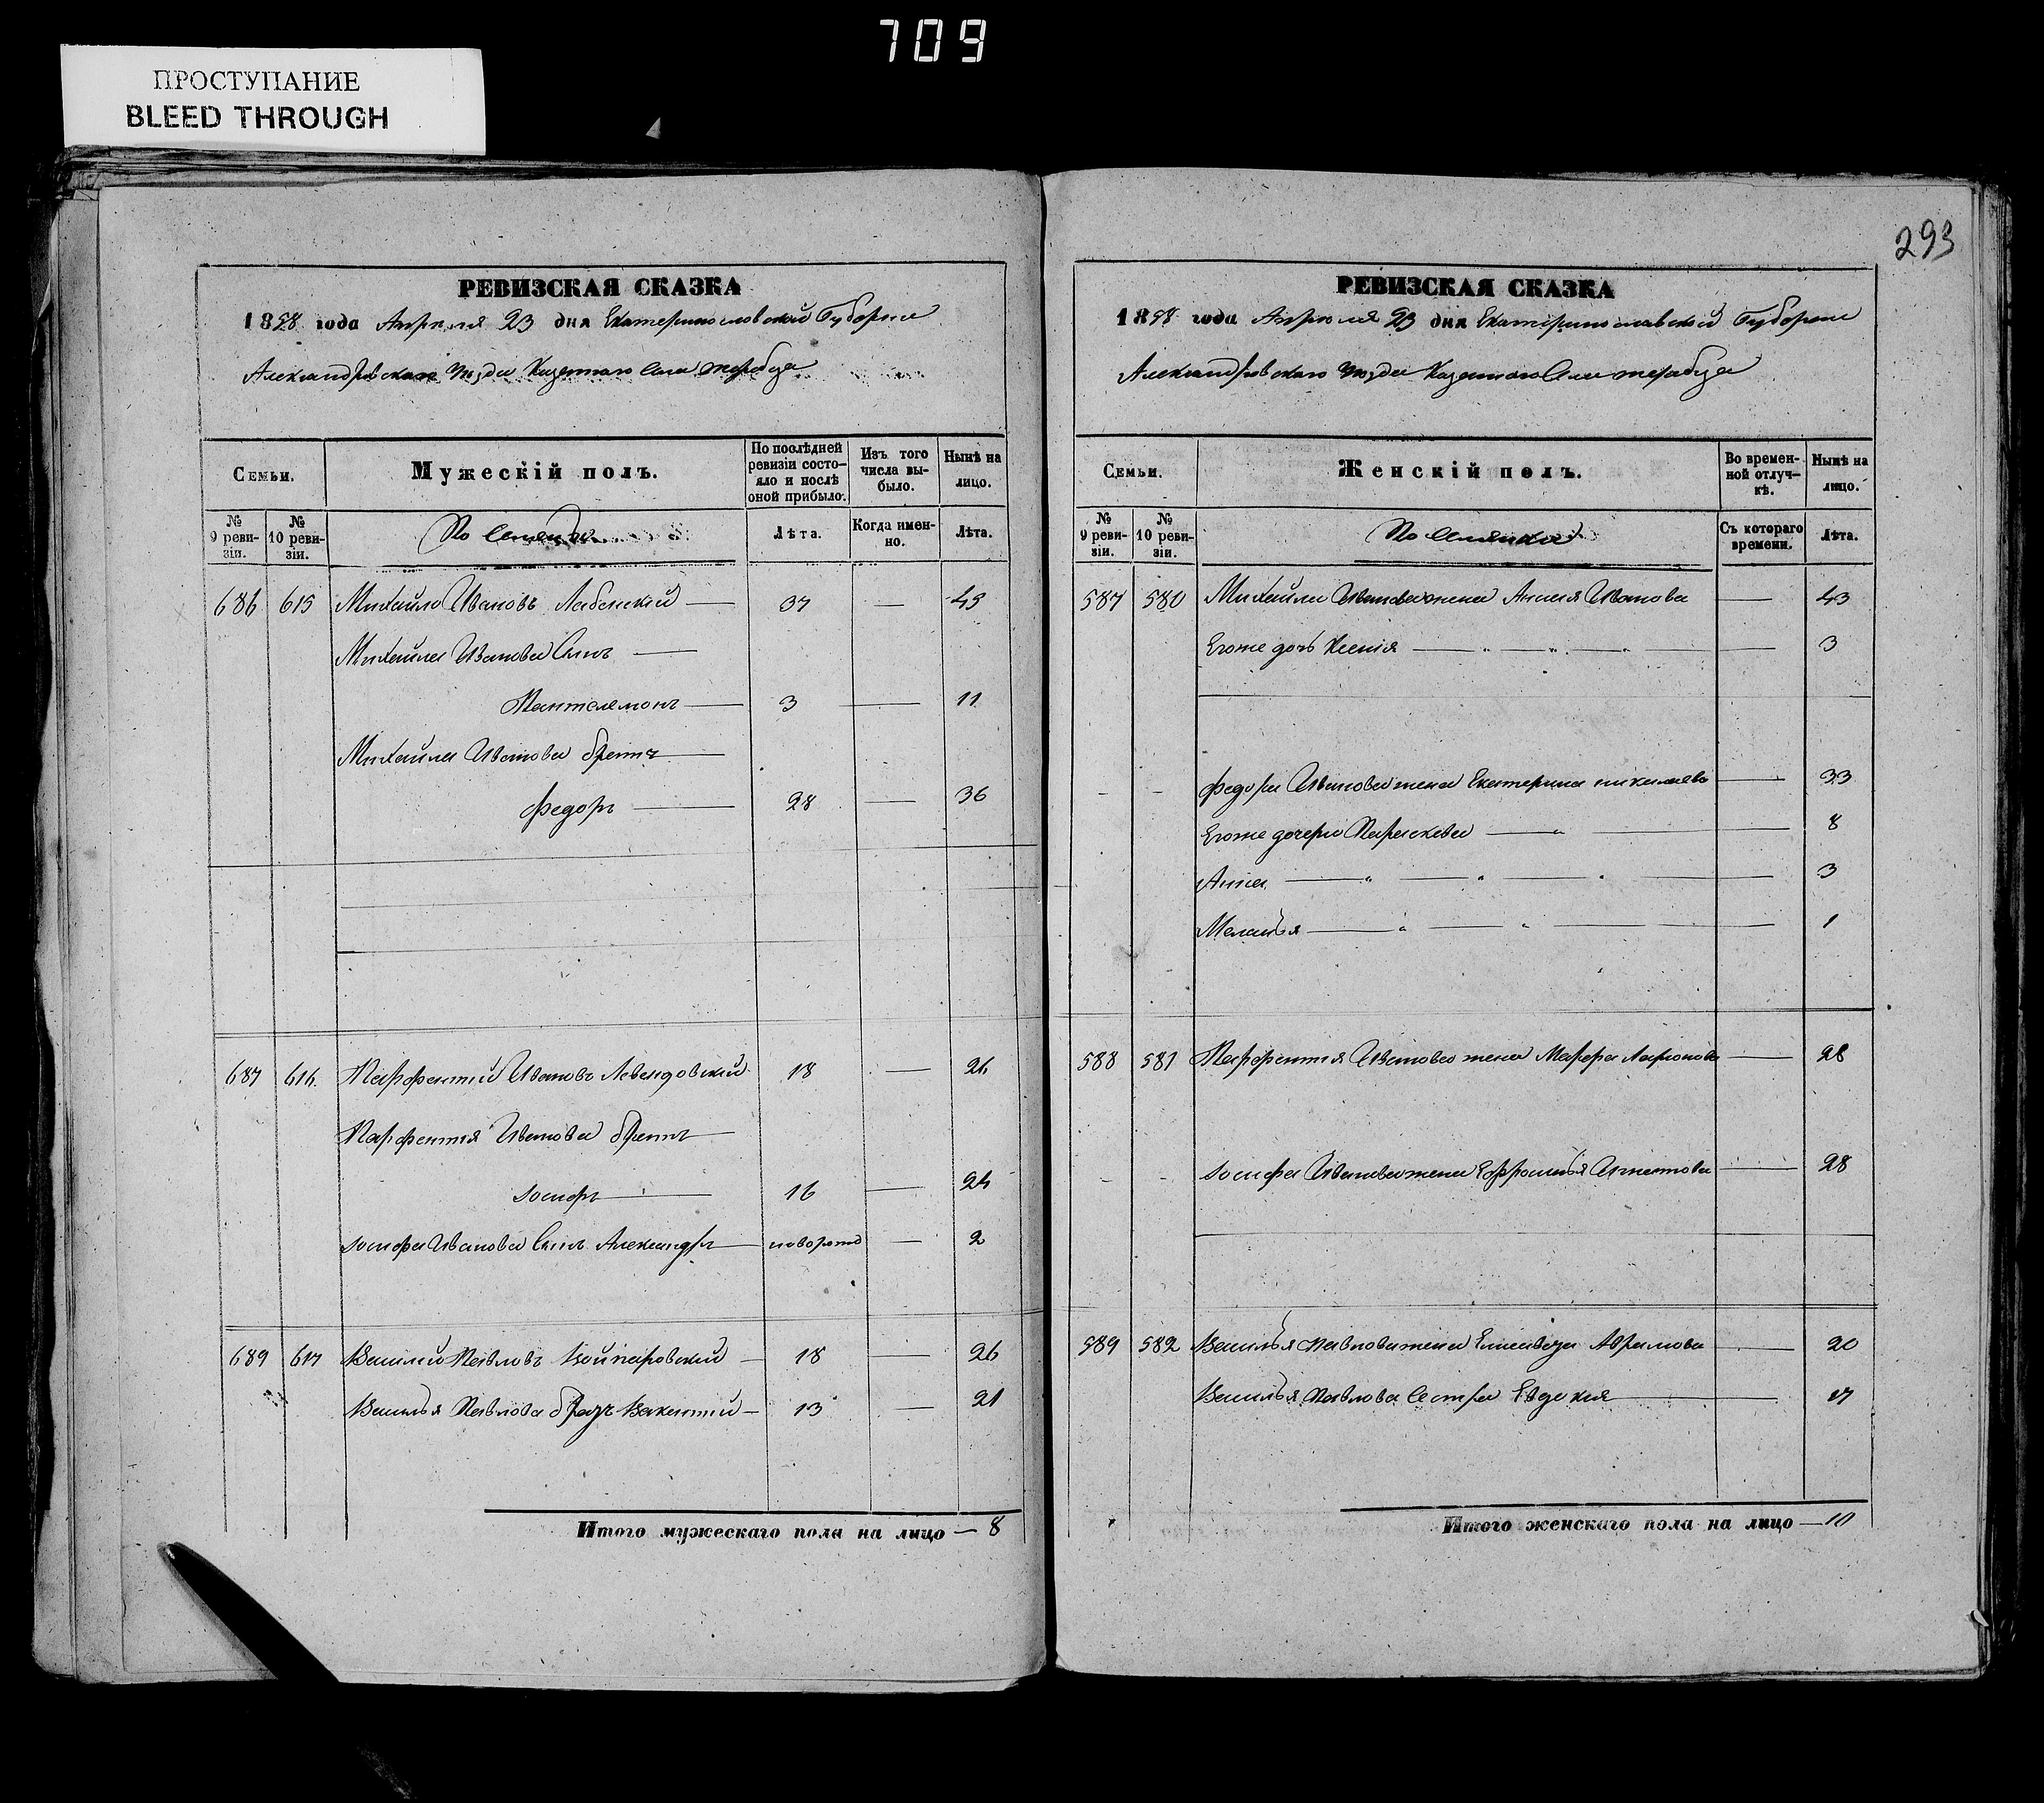 709
ПРОСТУПАНИЕ
BLEED THROUGH
РЕВИЗСКАЯ СКАЗКА
1858 года Апреля 23 дня Екатеринославской Губернии
Александровскаго Уезда Казеннаго Села
Семьи.
Мужескій полъ.
По послѣдней ревизіи состо-
яло и послѣ оной прибыло.
Изъ того числа вы-
было.
Нынѣ на лицо.
№ 9 реви-
зіи.
№ 10 реви-
зіи.
Лѣта.
Когда имен-
но.
Лѣта.
686 615 Михайло Ивановъ Лабенскій — 37 — 45
Михайла Иванова Сынъ —
Пантелемонъ — 3 — 11
Михайла Иванова братъ —
Федоръ — 28 — 36
687 616. Парфентій Ивановъ 18 — 26
Парфентія Иванова братъ —
Іосифъ — 16 — 24
Іосифа Иванова Сынъ Александръ — новорожд — 2
689 617 Василий Павловъ — 18 — 26
Василья Павлова братъ Викентій — 13 — 21
Итого мужескаго пола на лицо — 8
293
РЕВИЗСКАЯ СКАЗКА
1858 года Апреля 23 дня Екатеринославской Губернии
Александровскаго Уезда Казеннаго Села
Семьи.
Женскій полъ.
Во времен-
ной отлуч-
кѣ.
Нынѣ на лицо.
№ 9 реви-
зіи.
№ 10 реви-
зіи.
Съ котораго времени.
Лѣта.
587 580 Михайла Иванова жена Анна Иванова — 43
Егоже дочь Ксенія — " — " — " — 3
- - Федора Иванова жена Екатерина николаева — 33
Егоже дочери Параскева — " — 8
Анна — " — " — " — 3
Меланья — " — " — 1
588 581 Парфентія Иванова жена Марфа Ларионова — 28
- - Іосифа Иванова жена Ефросинья Игнатова — 28
589 582 Василья Павлова жена Елисавета Аврамова — 20
Василья Павлова Сестра Евдокия — 17
Итого женскаго пола на лицо — 10